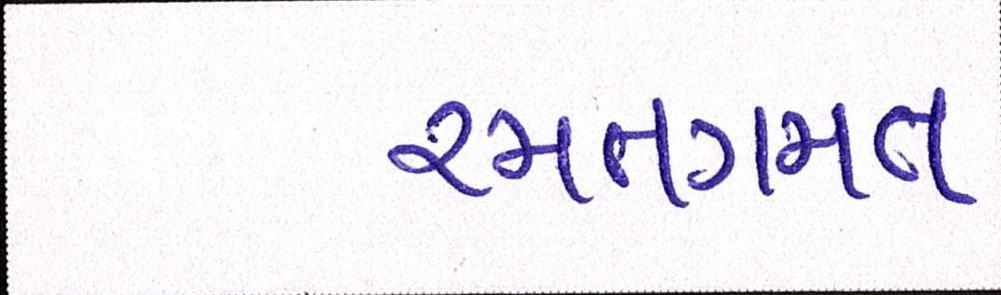 રમતગમત